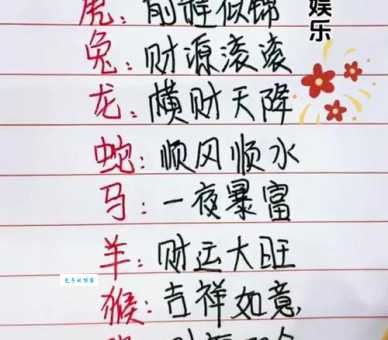 虎：前程似锦
娱乐
兔：财源滚滚
龙：横财天降
蛇：顺风顺水
马：一夜暴富
羊：财运大旺
猴：吉祥如意